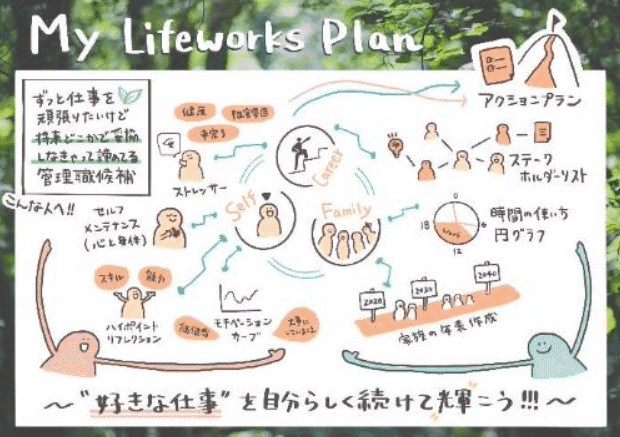 My Lifeworks Plan
ずっと仕事を
頑張りたいけど
将来どこかで妥協
しなきゃって諦めてる
管理職候補
こんな人へ!!
アクションプラン
健康
ストレッサー
Career
Self
Family
ステーク
ホルダーリスト
セルフ
メンテナンス
(心と身体)
時間の使い方
円グラフ
0
18
12
6
Work
スキル
能力
ハイポイント
リフレクション
価値観
モチベーション
カーブ
大事に
していること
2020
2030
2040
家族の年表作成
～"好きな仕事"を自分らしく続けて輝こう!!!～